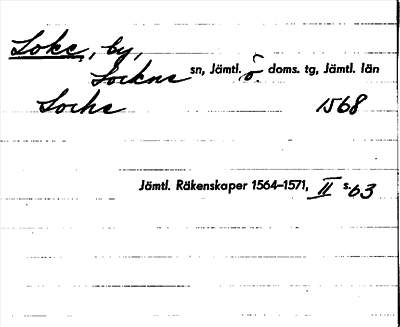 Loke, by,
Lockne sn, Jämtl. ö. doms. tg, Jämtl. län
Locke 1568
Jämtl. Räkenskaper 1564–1571, II s. 63